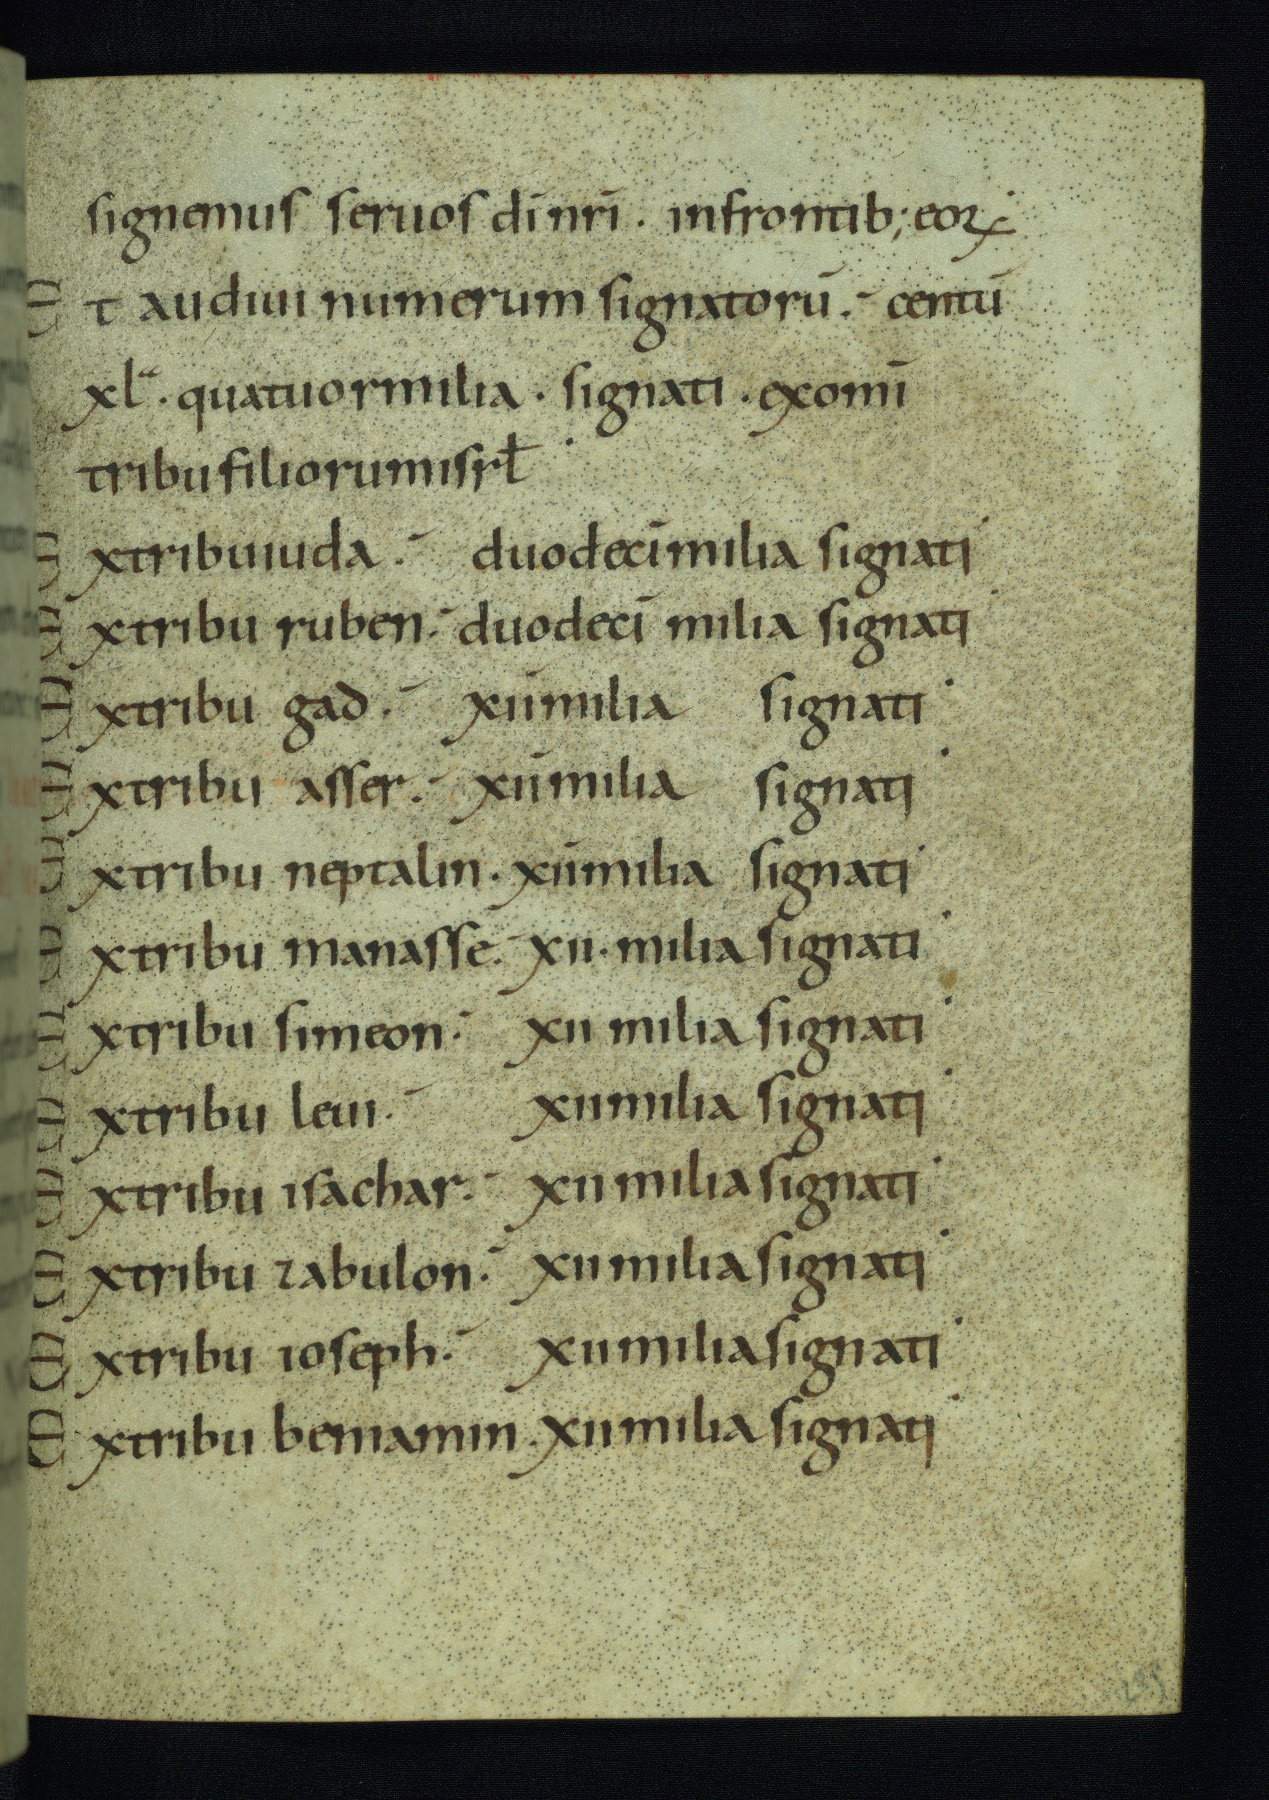 signemus seruos dī nrī . infrontib; eoꝝ
Et audiui numerum signatorū . centū
xl^a . quatuor milia . signati . exomī
tribu filiorum isrł .
Extribu iuda . duodecī milia signati
Extribu ruben . duodecī milia signati
Extribu gad . xii milia signati
Extribu asser . xii milia signati
Extribu neptalin . xii milia signati
Extribu manasse . xii . milia signati
Extribu simeon . xii milia signati
Extribu leui . xii milia signati
Extribu isachar . xii milia signati
Extribu zabulon . xii milia signati
Extribu ioseph . xii milia signati
Extribu beniamin . xii milia signati